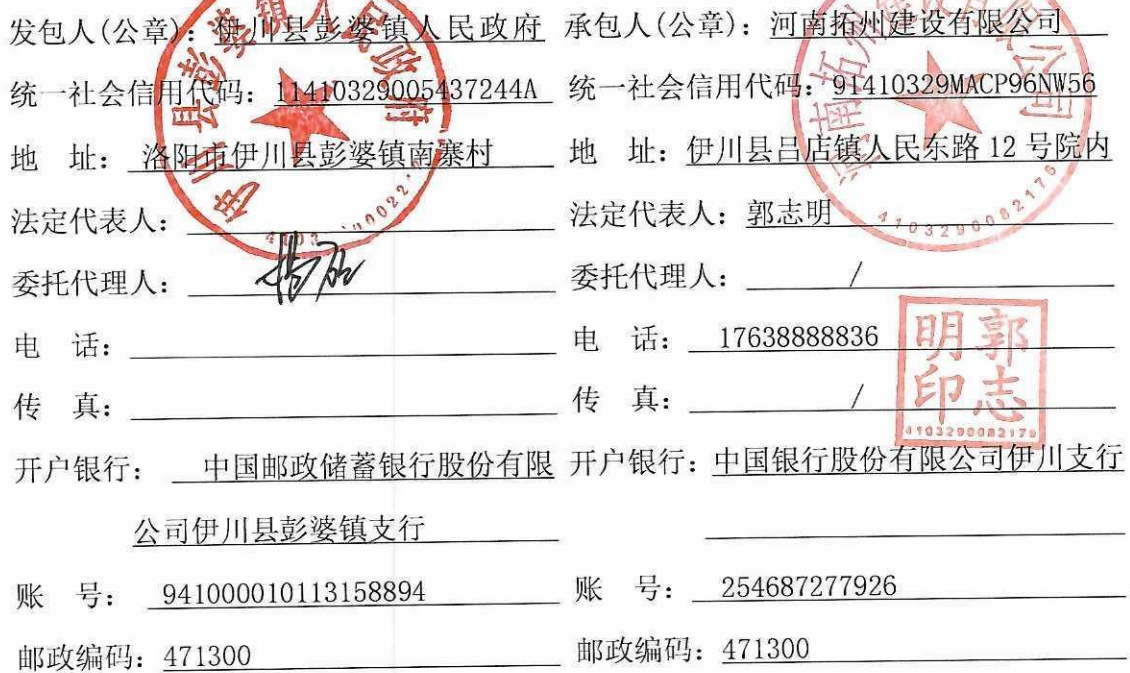 发包人(公章): 伊川县彭婆镇人民政府
统一社会信用代码: 11410329005437244A
地 址: 洛阳市伊川县彭婆镇南寨村
法定代表人:
委托代理人:
电 话:
传 真:
开户银行: 中国邮政储蓄银行股份有限
公司伊川县彭婆镇支行
账 号: 941000010113158894
邮政编码: 471300
承包人(公章): 河南拓州建设有限公司
统一社会信用代码: 91410329MACP96NW56
地 址: 伊川县吕店镇人民东路 12 号院内
法定代表人: 郭志明
委托代理人: /
电 话: 17638888836
传 真: /
开户银行: 中国银行股份有限公司伊川支行
账 号: 254687277926
邮政编码: 471300
伊川县彭婆镇人民政府
河南拓州建设有限公司
4103290082176
郭志明印
4103290082179